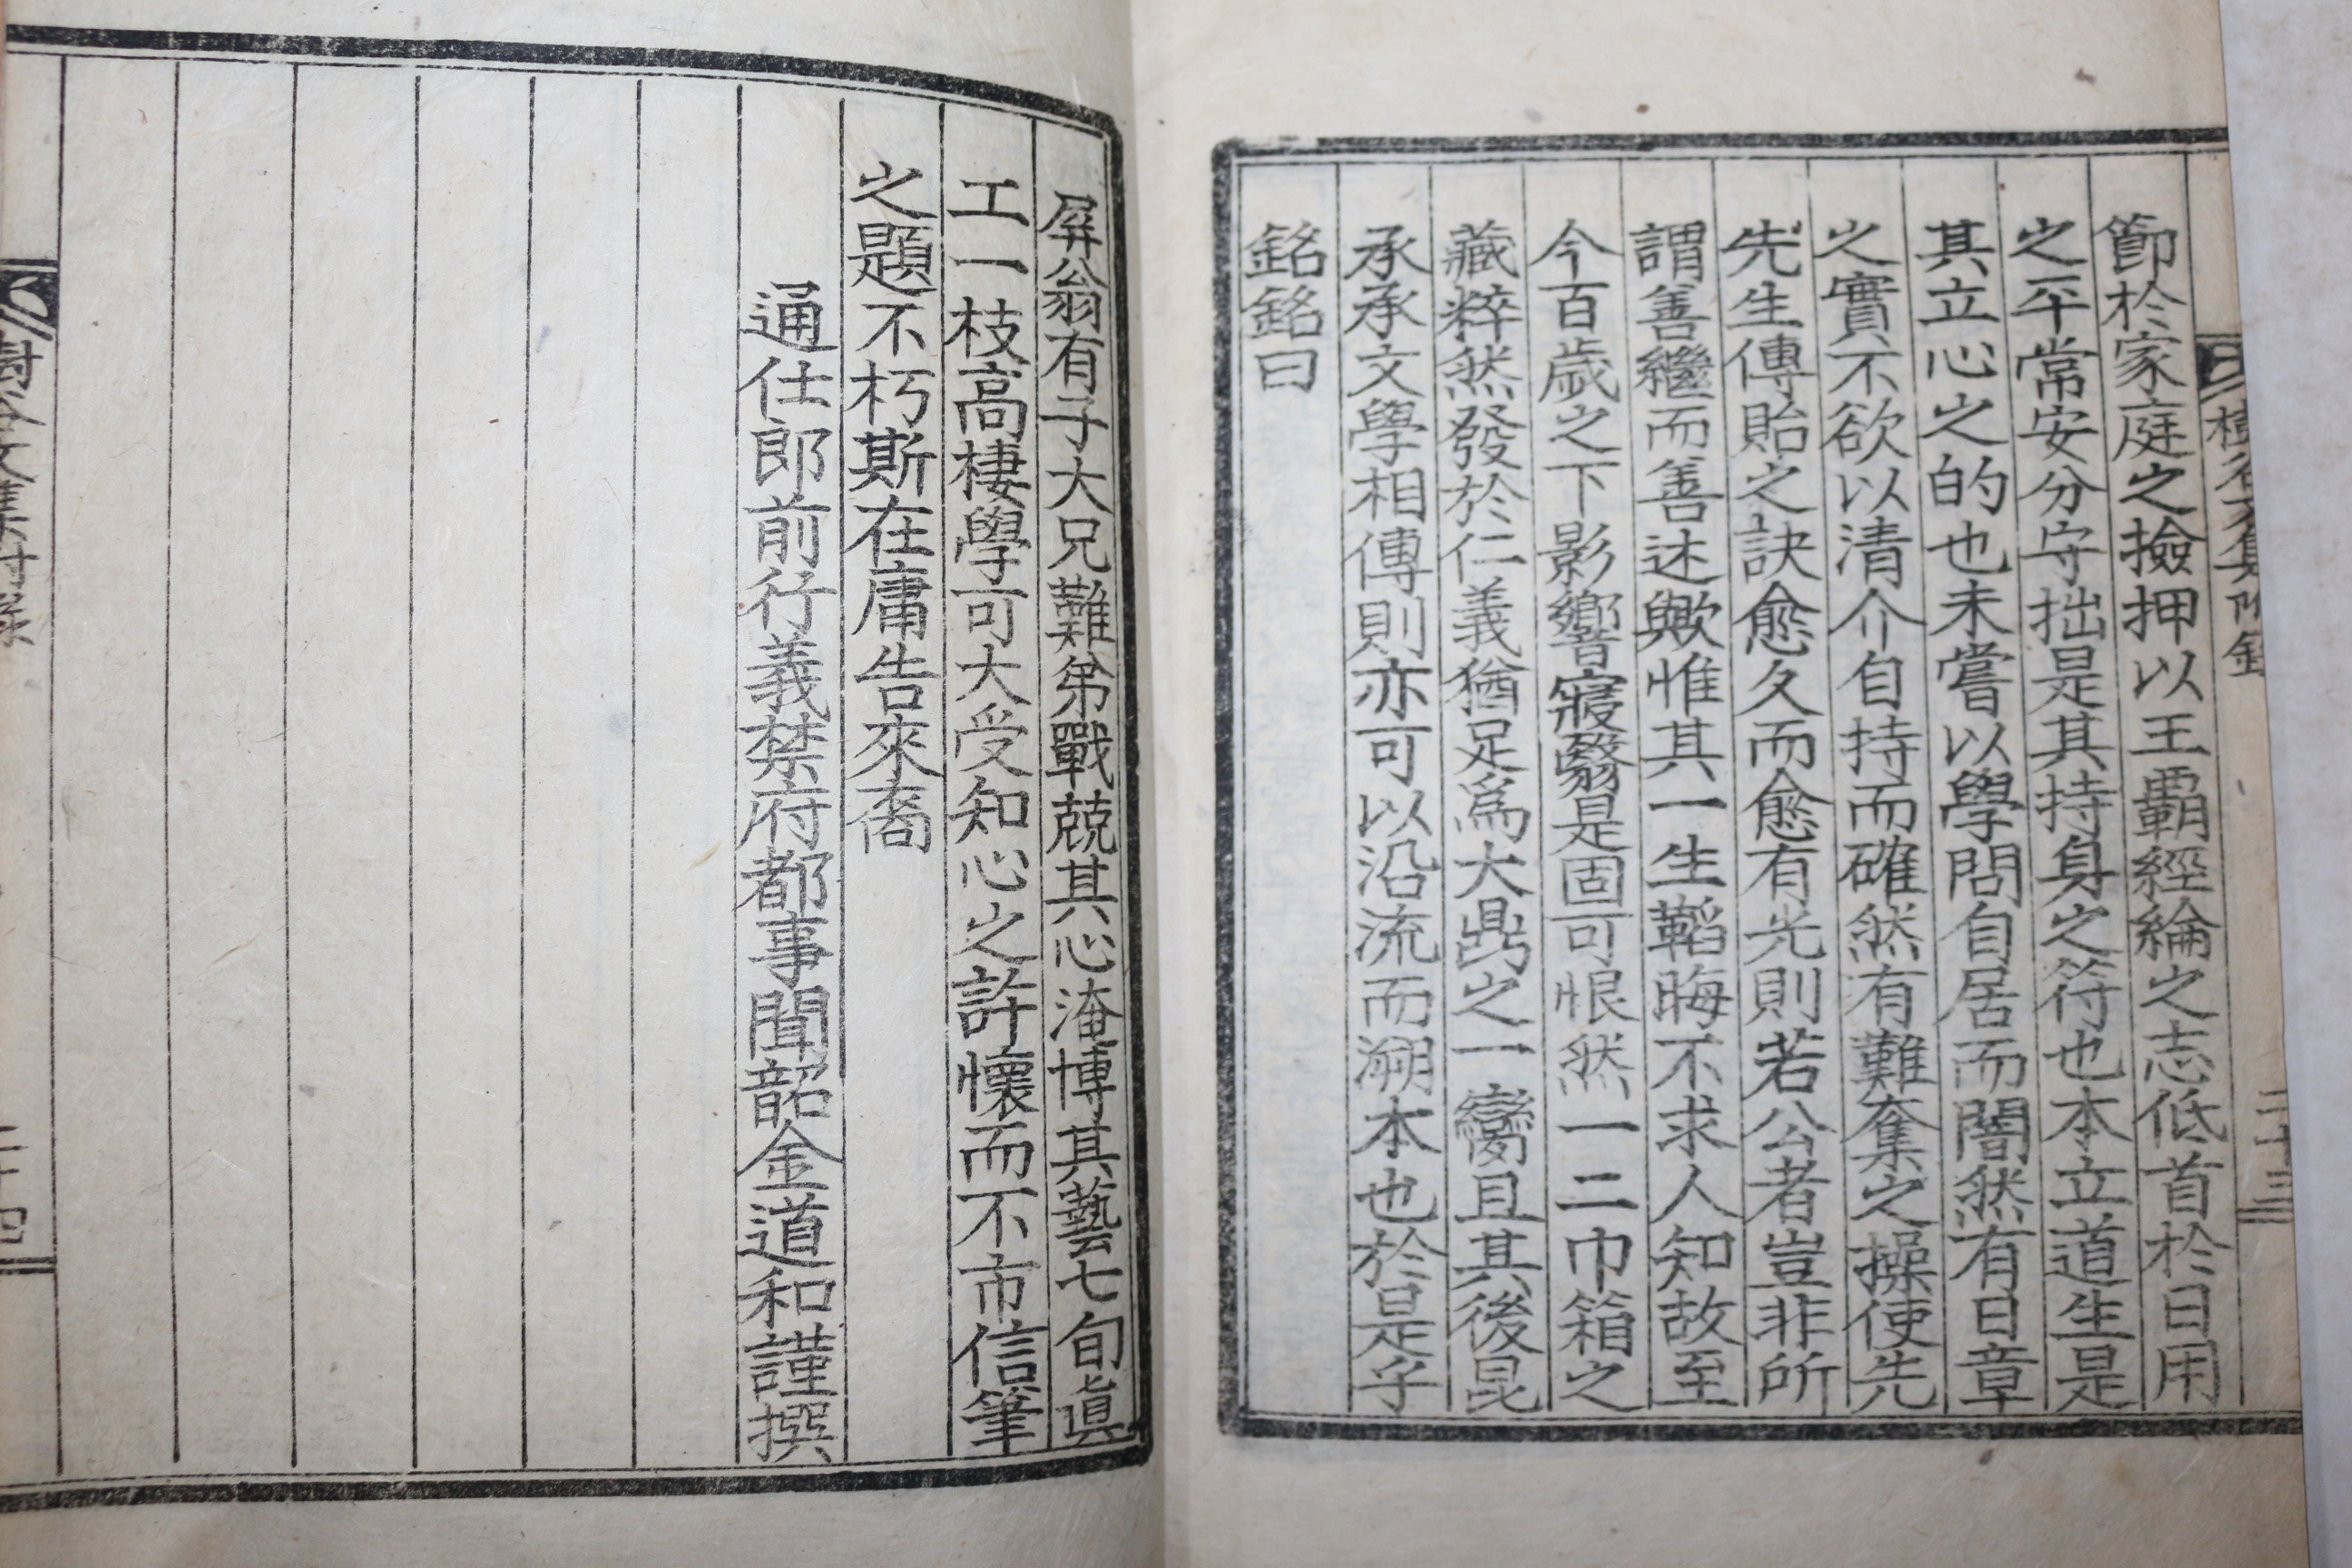 節於家庭之撿押以王覇經綸之志低首於日用
之平常安分守拙是其持身之符也本立道生是
其立心之的也未嘗以學問自居而闇然有日章
之實不欲以清介自持而確然有難奪之操使先
先生傳貽之訣愈久而愈有光則若公者豈非所
謂善繼而善述歟惟其一生韜晦不求人知故至
今百歲之下影響寢翳是固可恨然一二巾箱之
藏粹然發於仁義猶足爲大鼎之一臠且其後昆
承承文學相傳則亦可以沿流而溯本也於是乎
銘銘曰
屛翁有子大兄難弟戰兢其心淹博其藝七旬眞
工一枝高棲學可大受知心之許懷而不市信筆
之題不朽斯在庸告來裔
通仕郎前行義禁府都事聞韶金道和謹撰